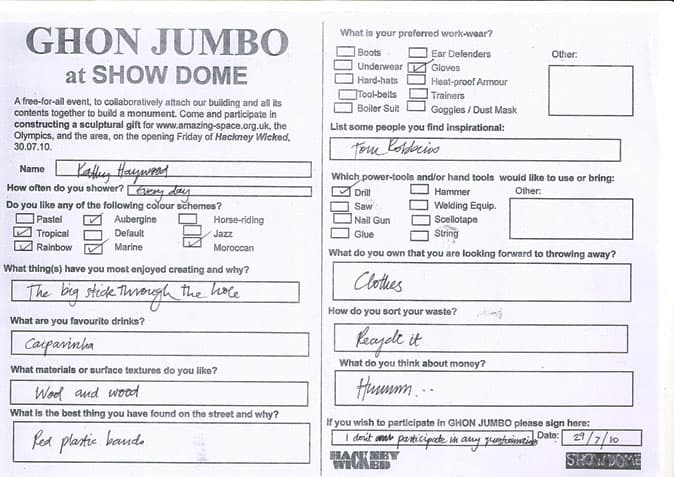 GHON JUMBO
at SHOW DOME
A free-for-all event, to collaboratively attach our building and all its
contents together to build a monument. Come and participate in
constructing a sculptural gift for www.amazing-space.org.uk, the
Olympics, and the area, on the opening Friday of Hackney Wicked,
30.07.10.
Name Kathy Haywood
How often do you shower? Every day
Do you like any of the following colour schemes?
Pastel Aubergine Horse-riding
Tropical Default Jazz
Rainbow Marine Moroccan
What thing(s) have you most enjoyed creating and why?
The big stick through the hole
What are you favourite drinks?
Caiparinha
What materials or surface textures do you like?
Wool and wood
What is the best thing you have found on the street and why?
Red plastic bands
What is your preferred work-wear?
Boots Ear Defenders Other:
Underwear Gloves
Hard-hats Heat-proof Armour
Tool-belts Trainers
Boiler Suit Goggles / Dust Mask
List some people you find inspirational:
Tom Robbins
Which power-tools and/or hand tools would like to use or bring:
Drill Hammer Other:
Saw Welding Equip.
Nail Gun Scellotape
Glue String
What do you own that you are looking forward to throwing away?
Clothes
How do you sort your waste?
Recycle it
What do you think about money?
Hummm...
If you wish to participate in GHON JUMBO please sign here:
I don't participate in any Date: 29/7/10
HACKNEY
WICKED
SHOWDOME